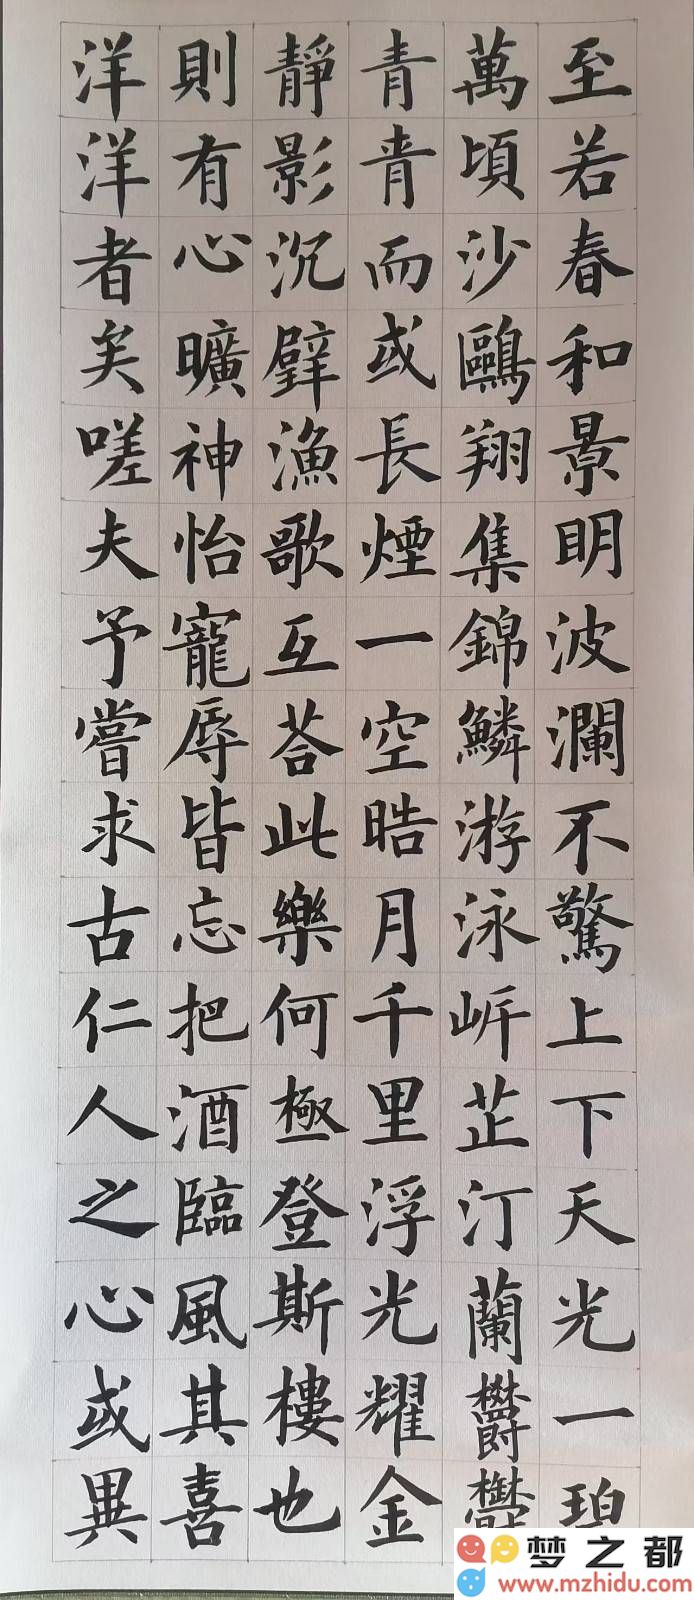 至若春和景明波瀾不驚上下天光一碧
萬頃沙鷗翔集錦鱗游泳岸芷汀蘭鬱鬱
青青而或長煙一空晧月千里浮光耀金
靜影沉璧漁歌互荅此樂何極登斯樓也
則有心曠神怡寵辱皆忘把酒臨風其喜
洋洋者矣嗟夫予嘗求古仁人之心或異
梦之都
www.mzhidu.com